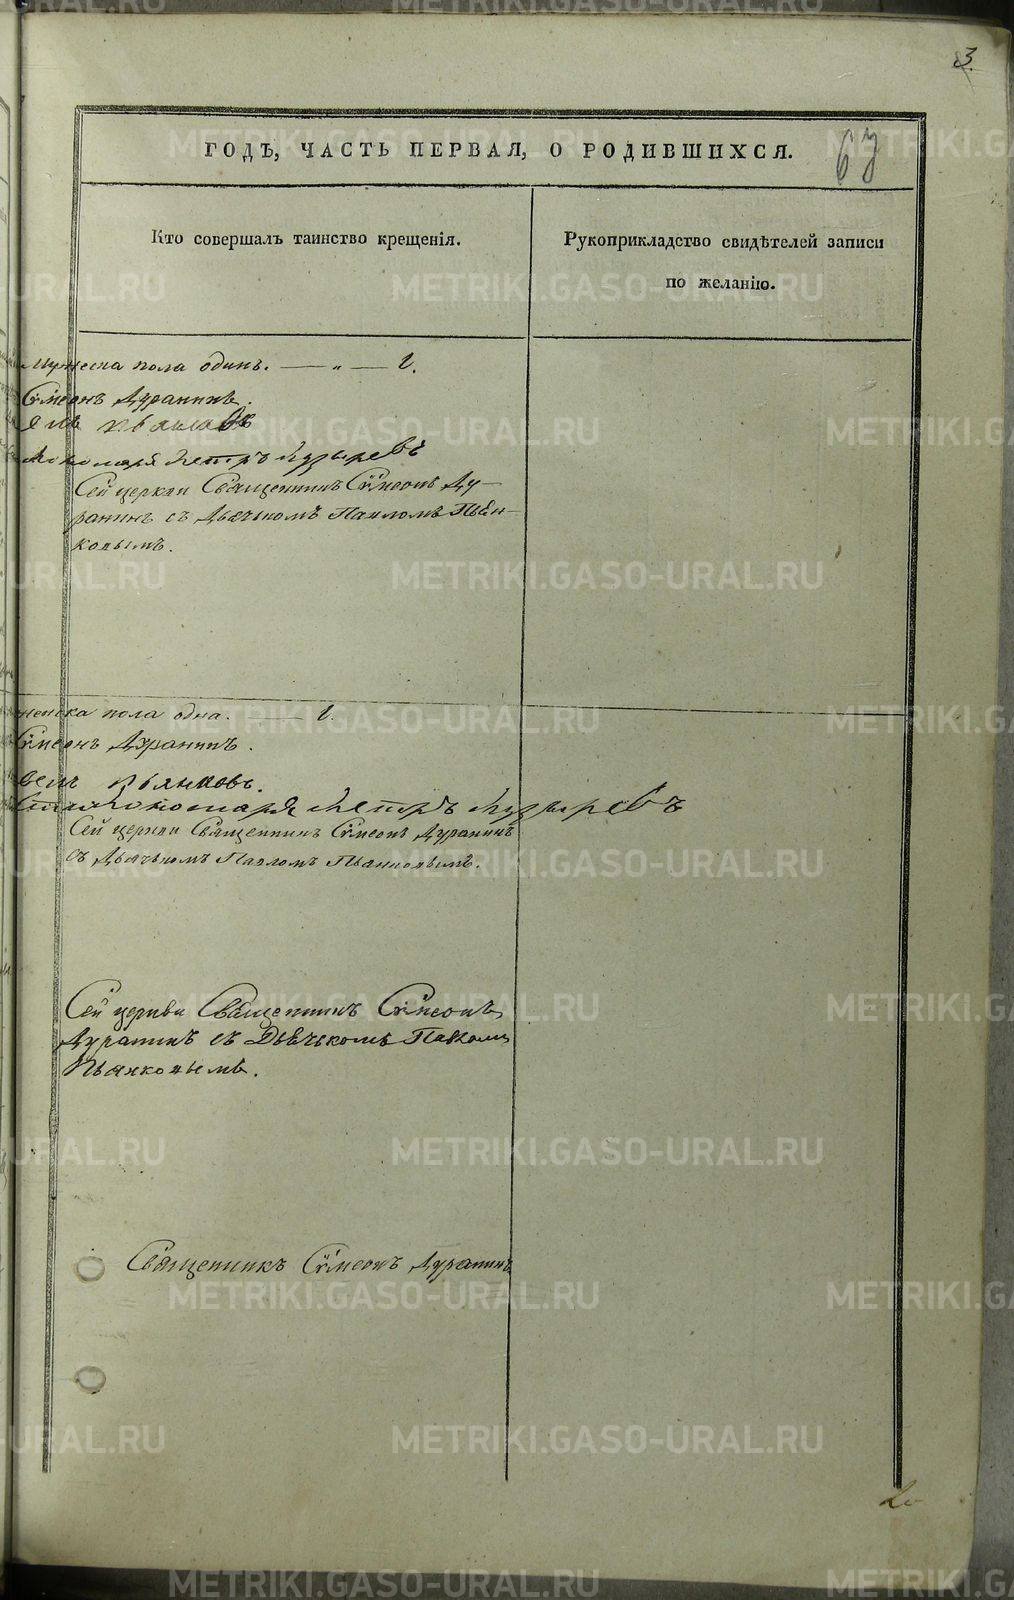 3.
ГОДЪ, ЧАСТЬ ПЕРВАЯ, О РОДИВШИХСЯ.
63
Кто совершалъ таинство крещенія.
Рукоприкладство свидѣтелей записи
по желанію.
мужеска пола одинъ. — „ — 1.
Сѵмеонъ Дуранинъ.
Пономаря Петръ Пузыревъ
Сей церкви Священникъ Сѵмеонъ Ду-
ранинъ съ Дьячькомъ Павломъ Пьян-
ковымъ.
женска пола одна. — 1.
Сѵмеонъ Дуранинъ.
велъ Пьянковъ.
Пономаря Петръ Пузыревъ
Сей церкви Священникъ Сѵмеонъ Дуранинъ
съ Дьячькомъ Павломъ Пьянковымъ.
Сей церкви Священникъ Сѵмеонъ
Дуранинъ съ Дьячькомъ Павломъ
Пьянковымъ.
Священникъ Сѵмеонъ Дуранинъ
METRIKI.GASO-URAL.RU